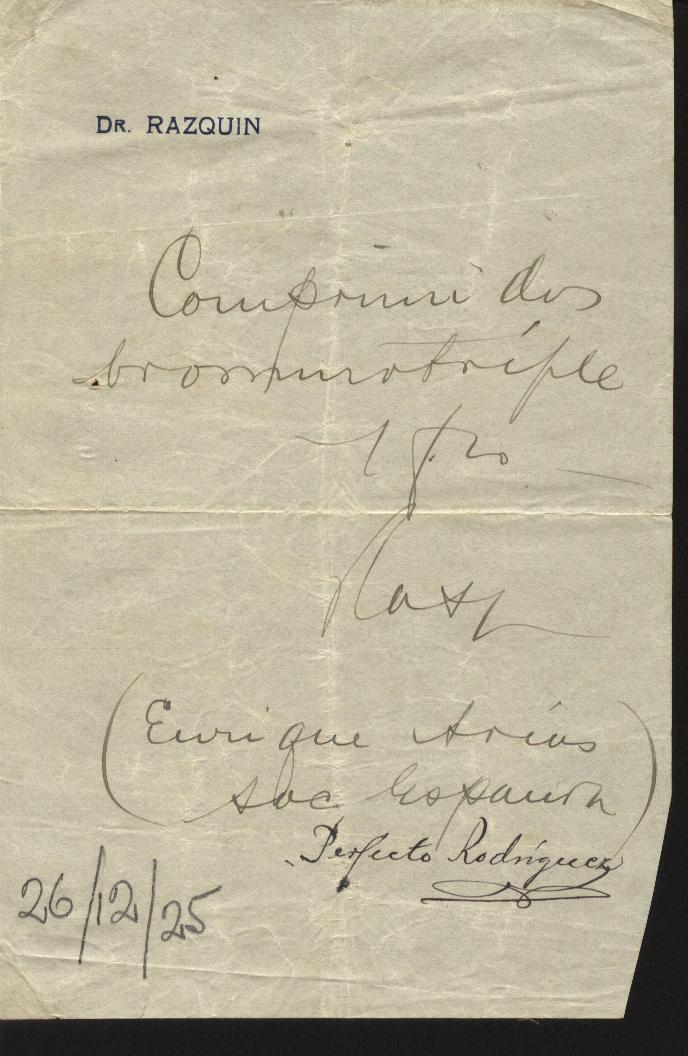 DR. RAZQUIN
Comprimidos
bromuro triple
Razq
(Enrique Arias
Soc Española)
Perfecto Rodríguez
26/12/25